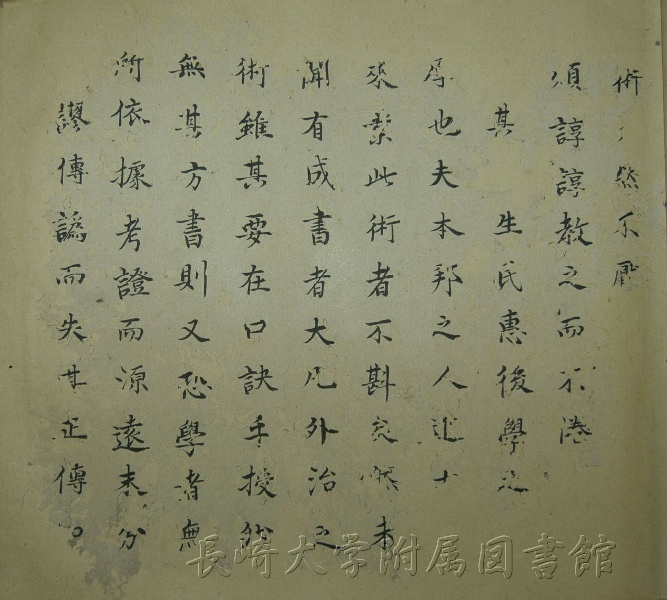 術 然不
頌諄諄教之而不倦
其 生民惠後學之
厚也夫本邦之人近
來業此術者不斟 然未
聞有成書者大凡外治之
術雖其要在口訣手授然
無其方書則又恐學者無
所依據考證而源遠末分
謬傳譌而失其正傳。
長崎大学附属図書館